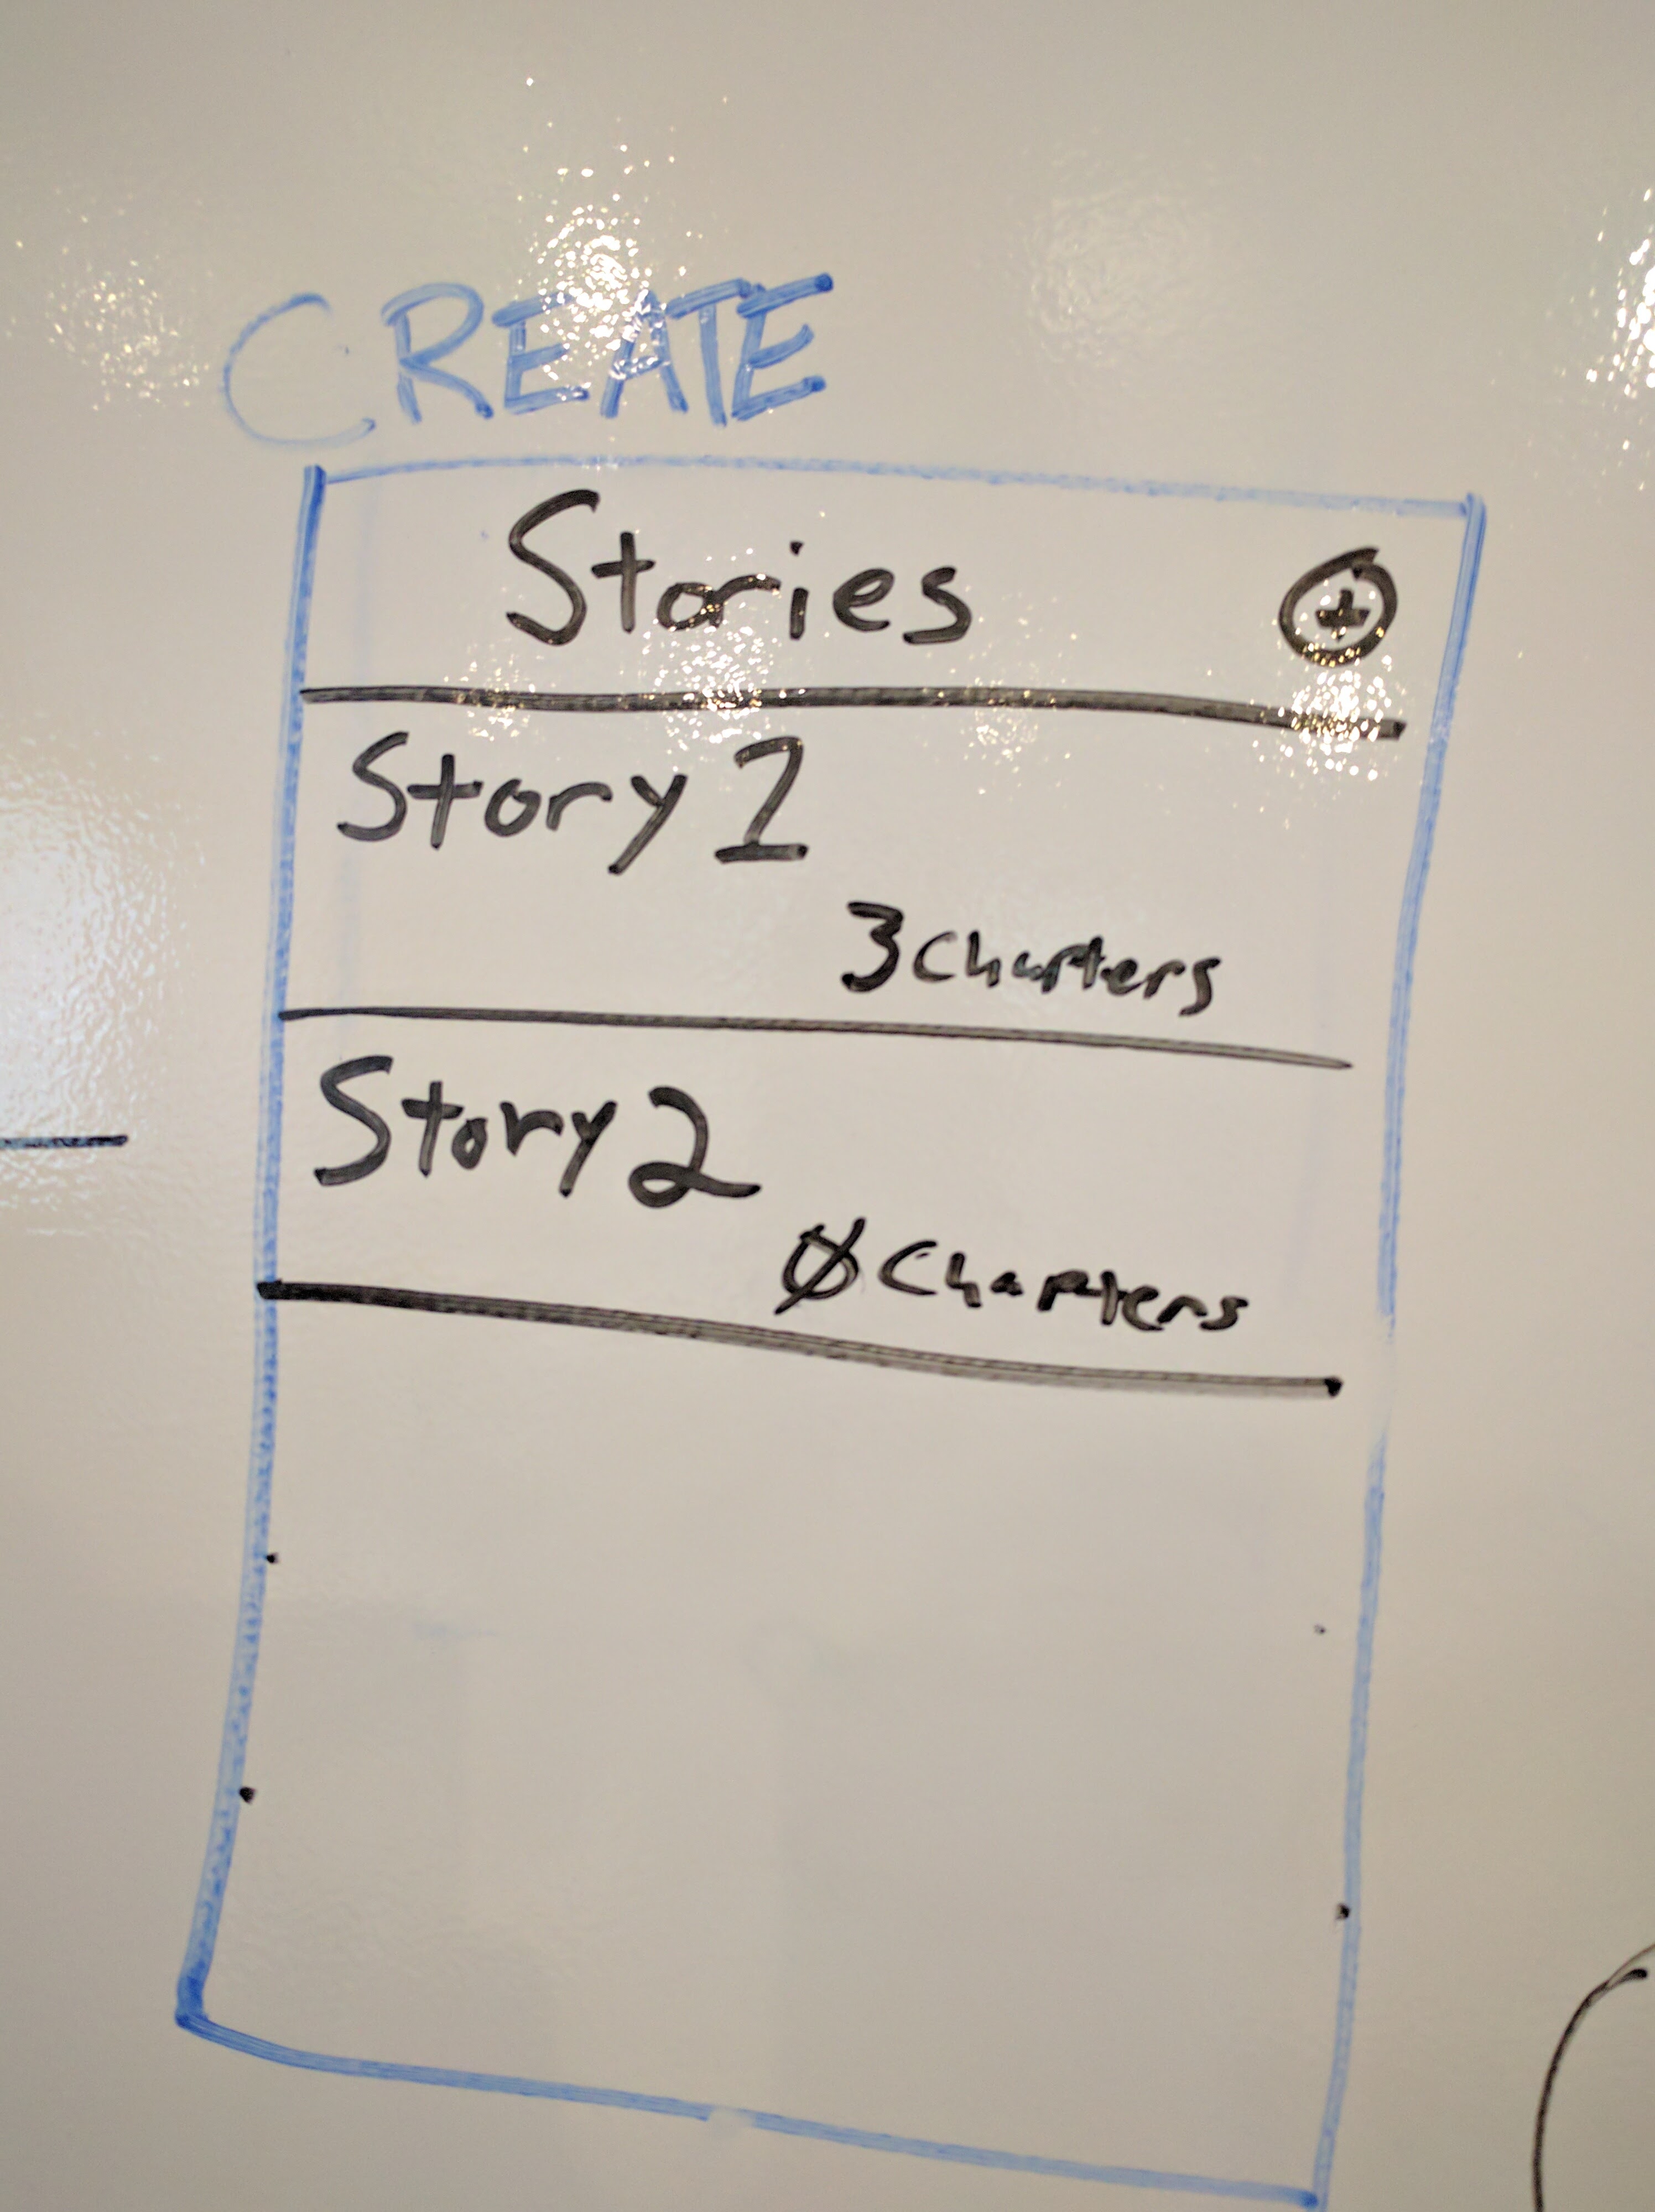 CREATE
Stories +
Story 1
3 Chapters
Story 2
0 Chapters